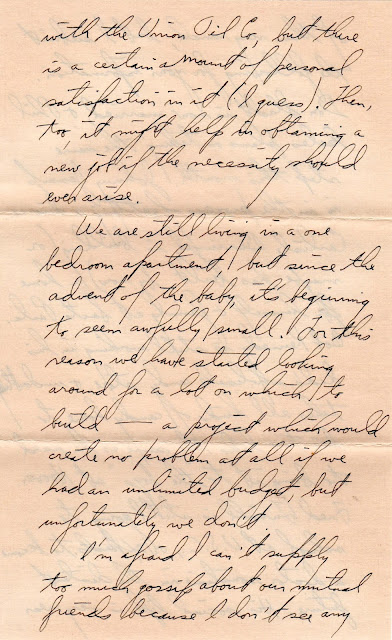 with the Union Oil Co, but there
is a certain amount of personal
satisfaction in it (I guess). Then,
too, it might help in obtaining a
new job if the necessity should
ever arise.
We are still living in a one
bedroom apartment, but since the
advent of the baby, it's beginning
to seem awfully small. For this
reason we have started looking
around for a lot on which to
build — a project which would
create no problem at all if we
had an unlimited budget, but
unfortunately we don't.
I'm afraid I can't supply
too much gossip about our mutual
friends because I don't see any